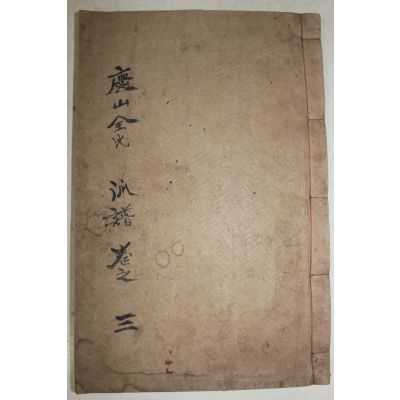 慶山全氏 派譜 卷之 三